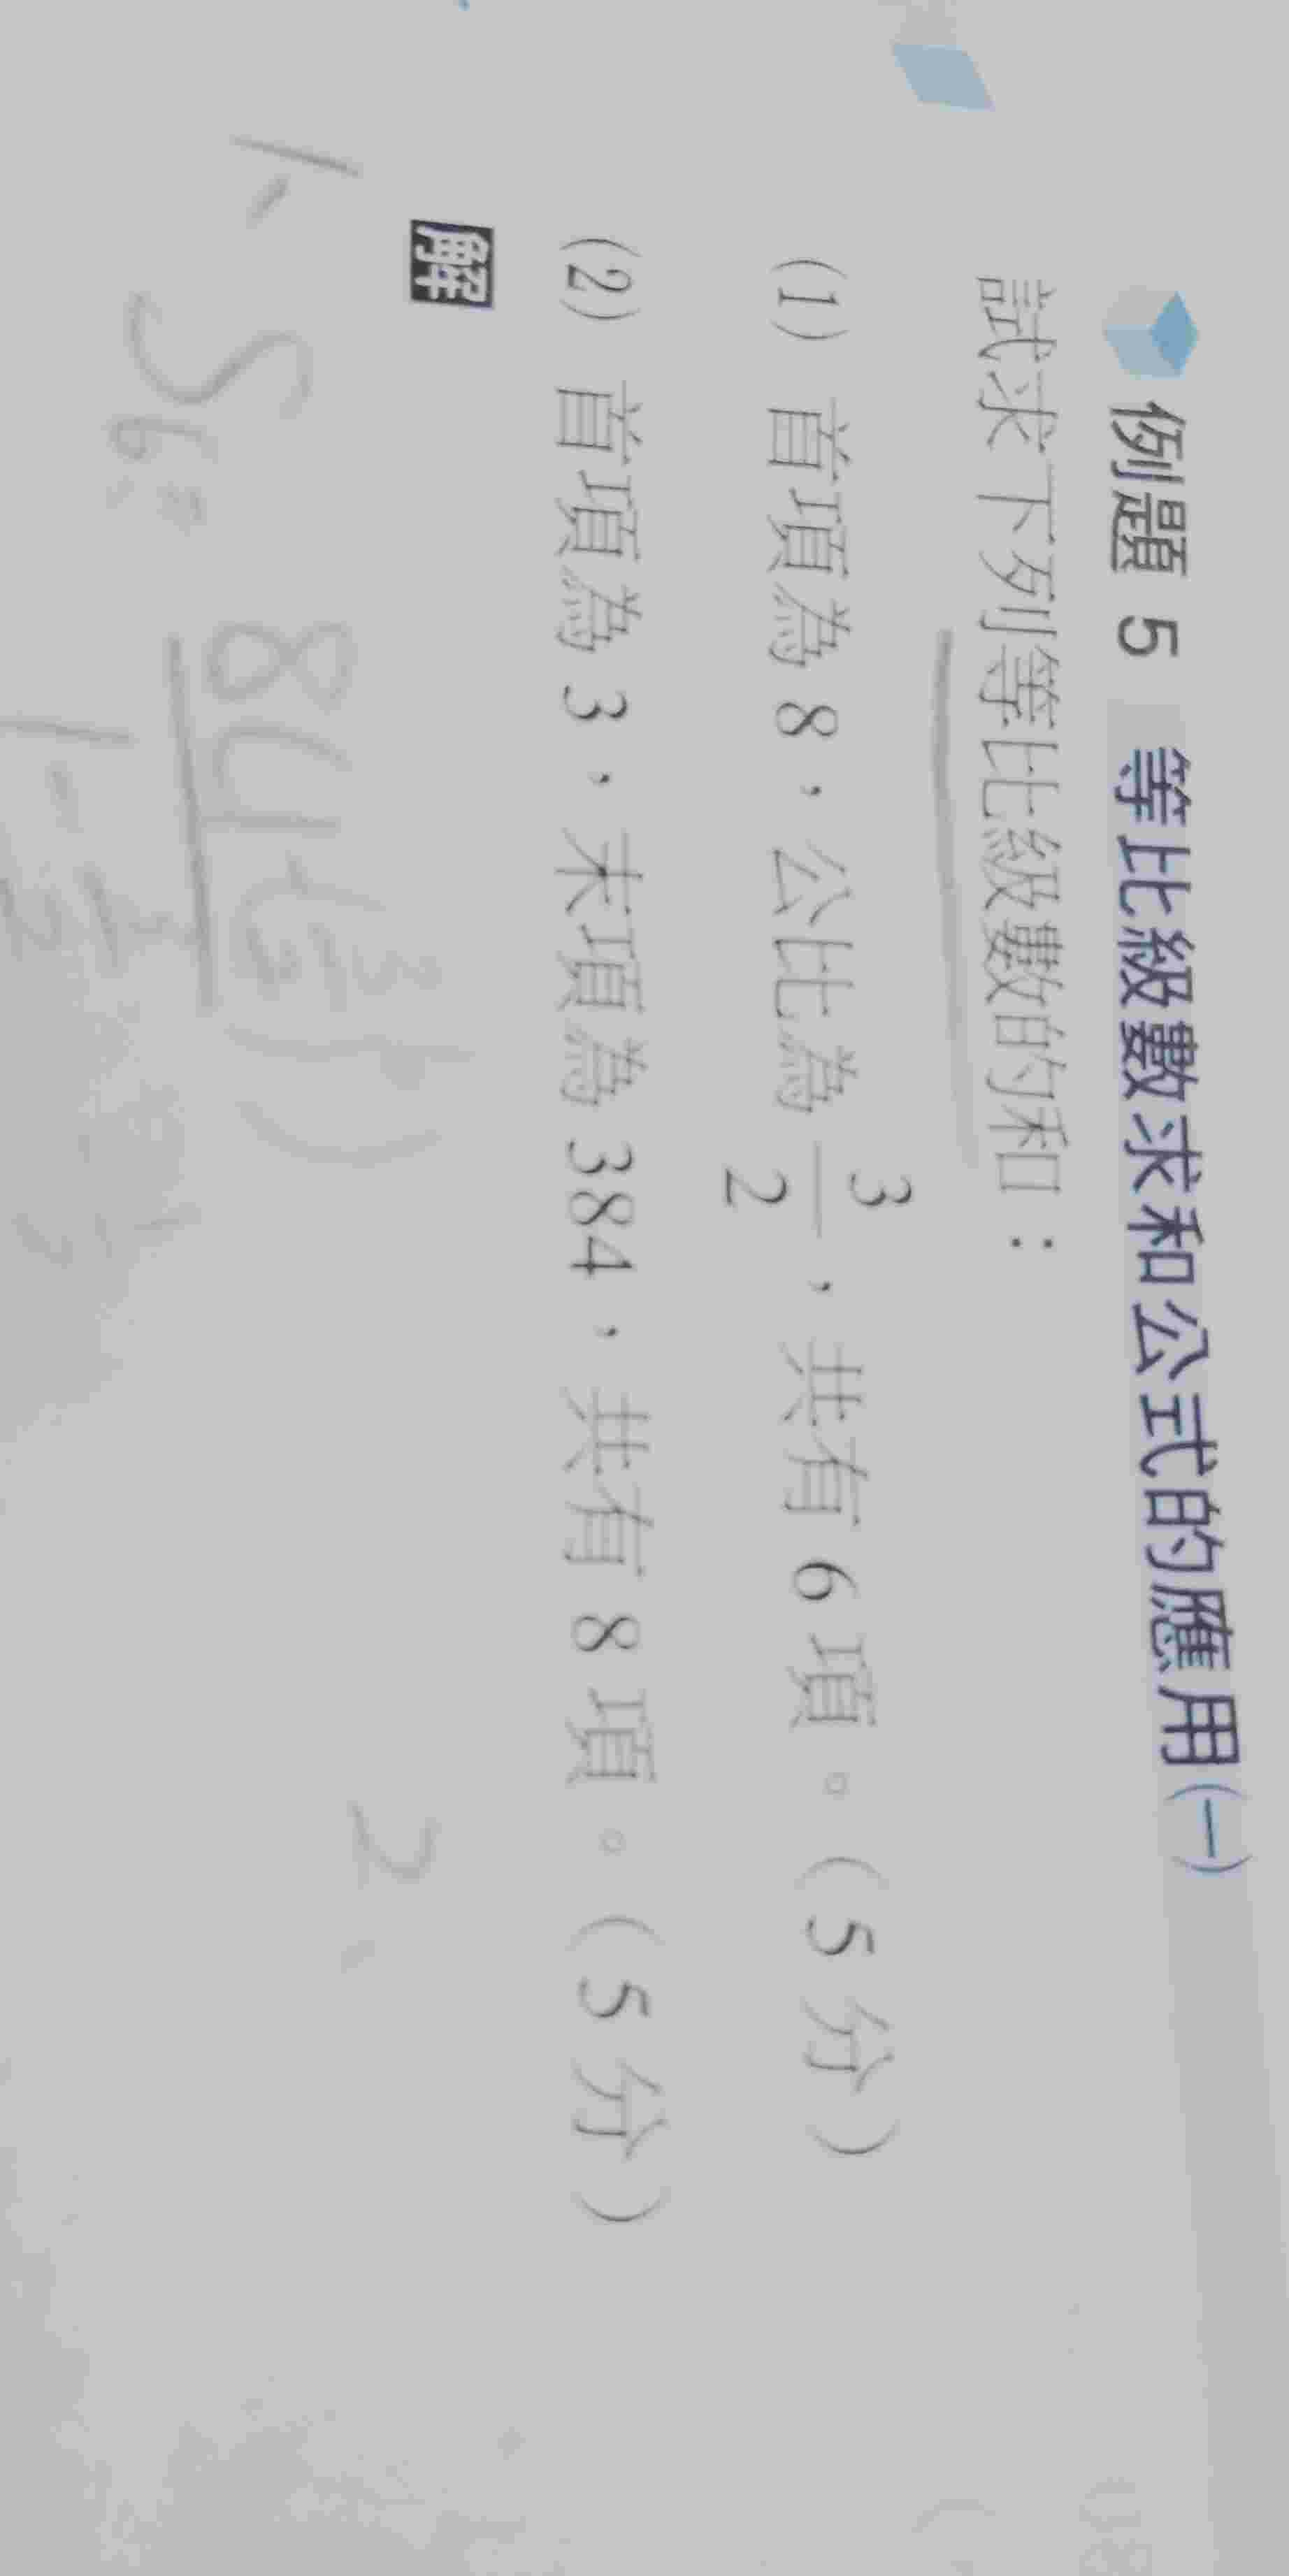 例題 5 等比級數求和公式的應用(一)
試求下列等比級數的和：
(1) 首項為 8，公比為 3/2，共有 6 項。（5 分）
(2) 首項為 3，末項為 384，共有 8 項。（5 分）
解
1.
S6=
2.